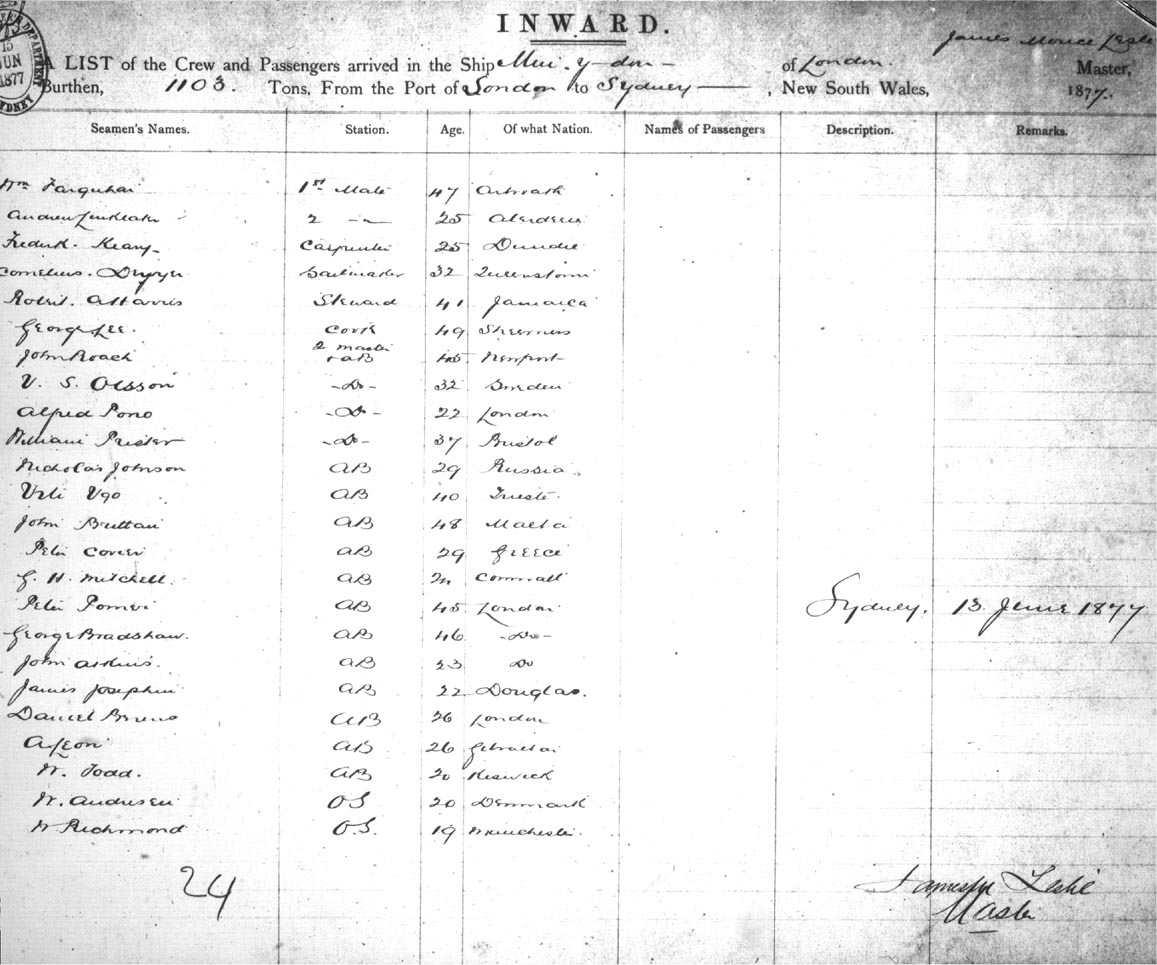 INWARD.
15 JUN 1877
SYDNEY
James Leslie
A LIST of the Crew and Passengers arrived in the Ship of London. Master,
Burthen, 1103. Tons, From the Port of London to Sydney — , New South Wales, 1877.
Seamen's Names. Station. Age. Of what Nation. Names of Passengers Description. Remarks.
Wm Farquhar 1st Mate 47 Arbroath
Andrew 2 -"- 25 Aberdeen
Fredk. Keany Carpenter 25 Dundee
Cornelius. Dwyer Sailmaker 32 Queenstown
Robert. A Harris Steward 41 Jamaica
George Lee. Cook 49 Sheerness
John Roach 2 master + AB 45 Newport
V. S. Olsson -Do- 32 Sweden
Alfred Pono -Do- 22 London
William -Do- 37 Bristol
Nicholas Johnson AB 29 Russia
Ugo AB 40 Trieste
John Bruttan AB 48 Malta
Peter AB 29 Greece
G. H. Mitchell. AB Cornwall
Peter AB 45 London
Sydney. 13 June 1877
George Bradshaw. AB 46 -Do-
John Atkins. AB 23 Do
James Josephin AB 22 Douglas.
Daniel AB 26 London
A Leon AB 26 Gibraltar
W. Todd. AB 20 Keswick
W. Andresen OS 20 Denmark
W Richmond O.S. 19 Manchester
24
James Leslie
Master